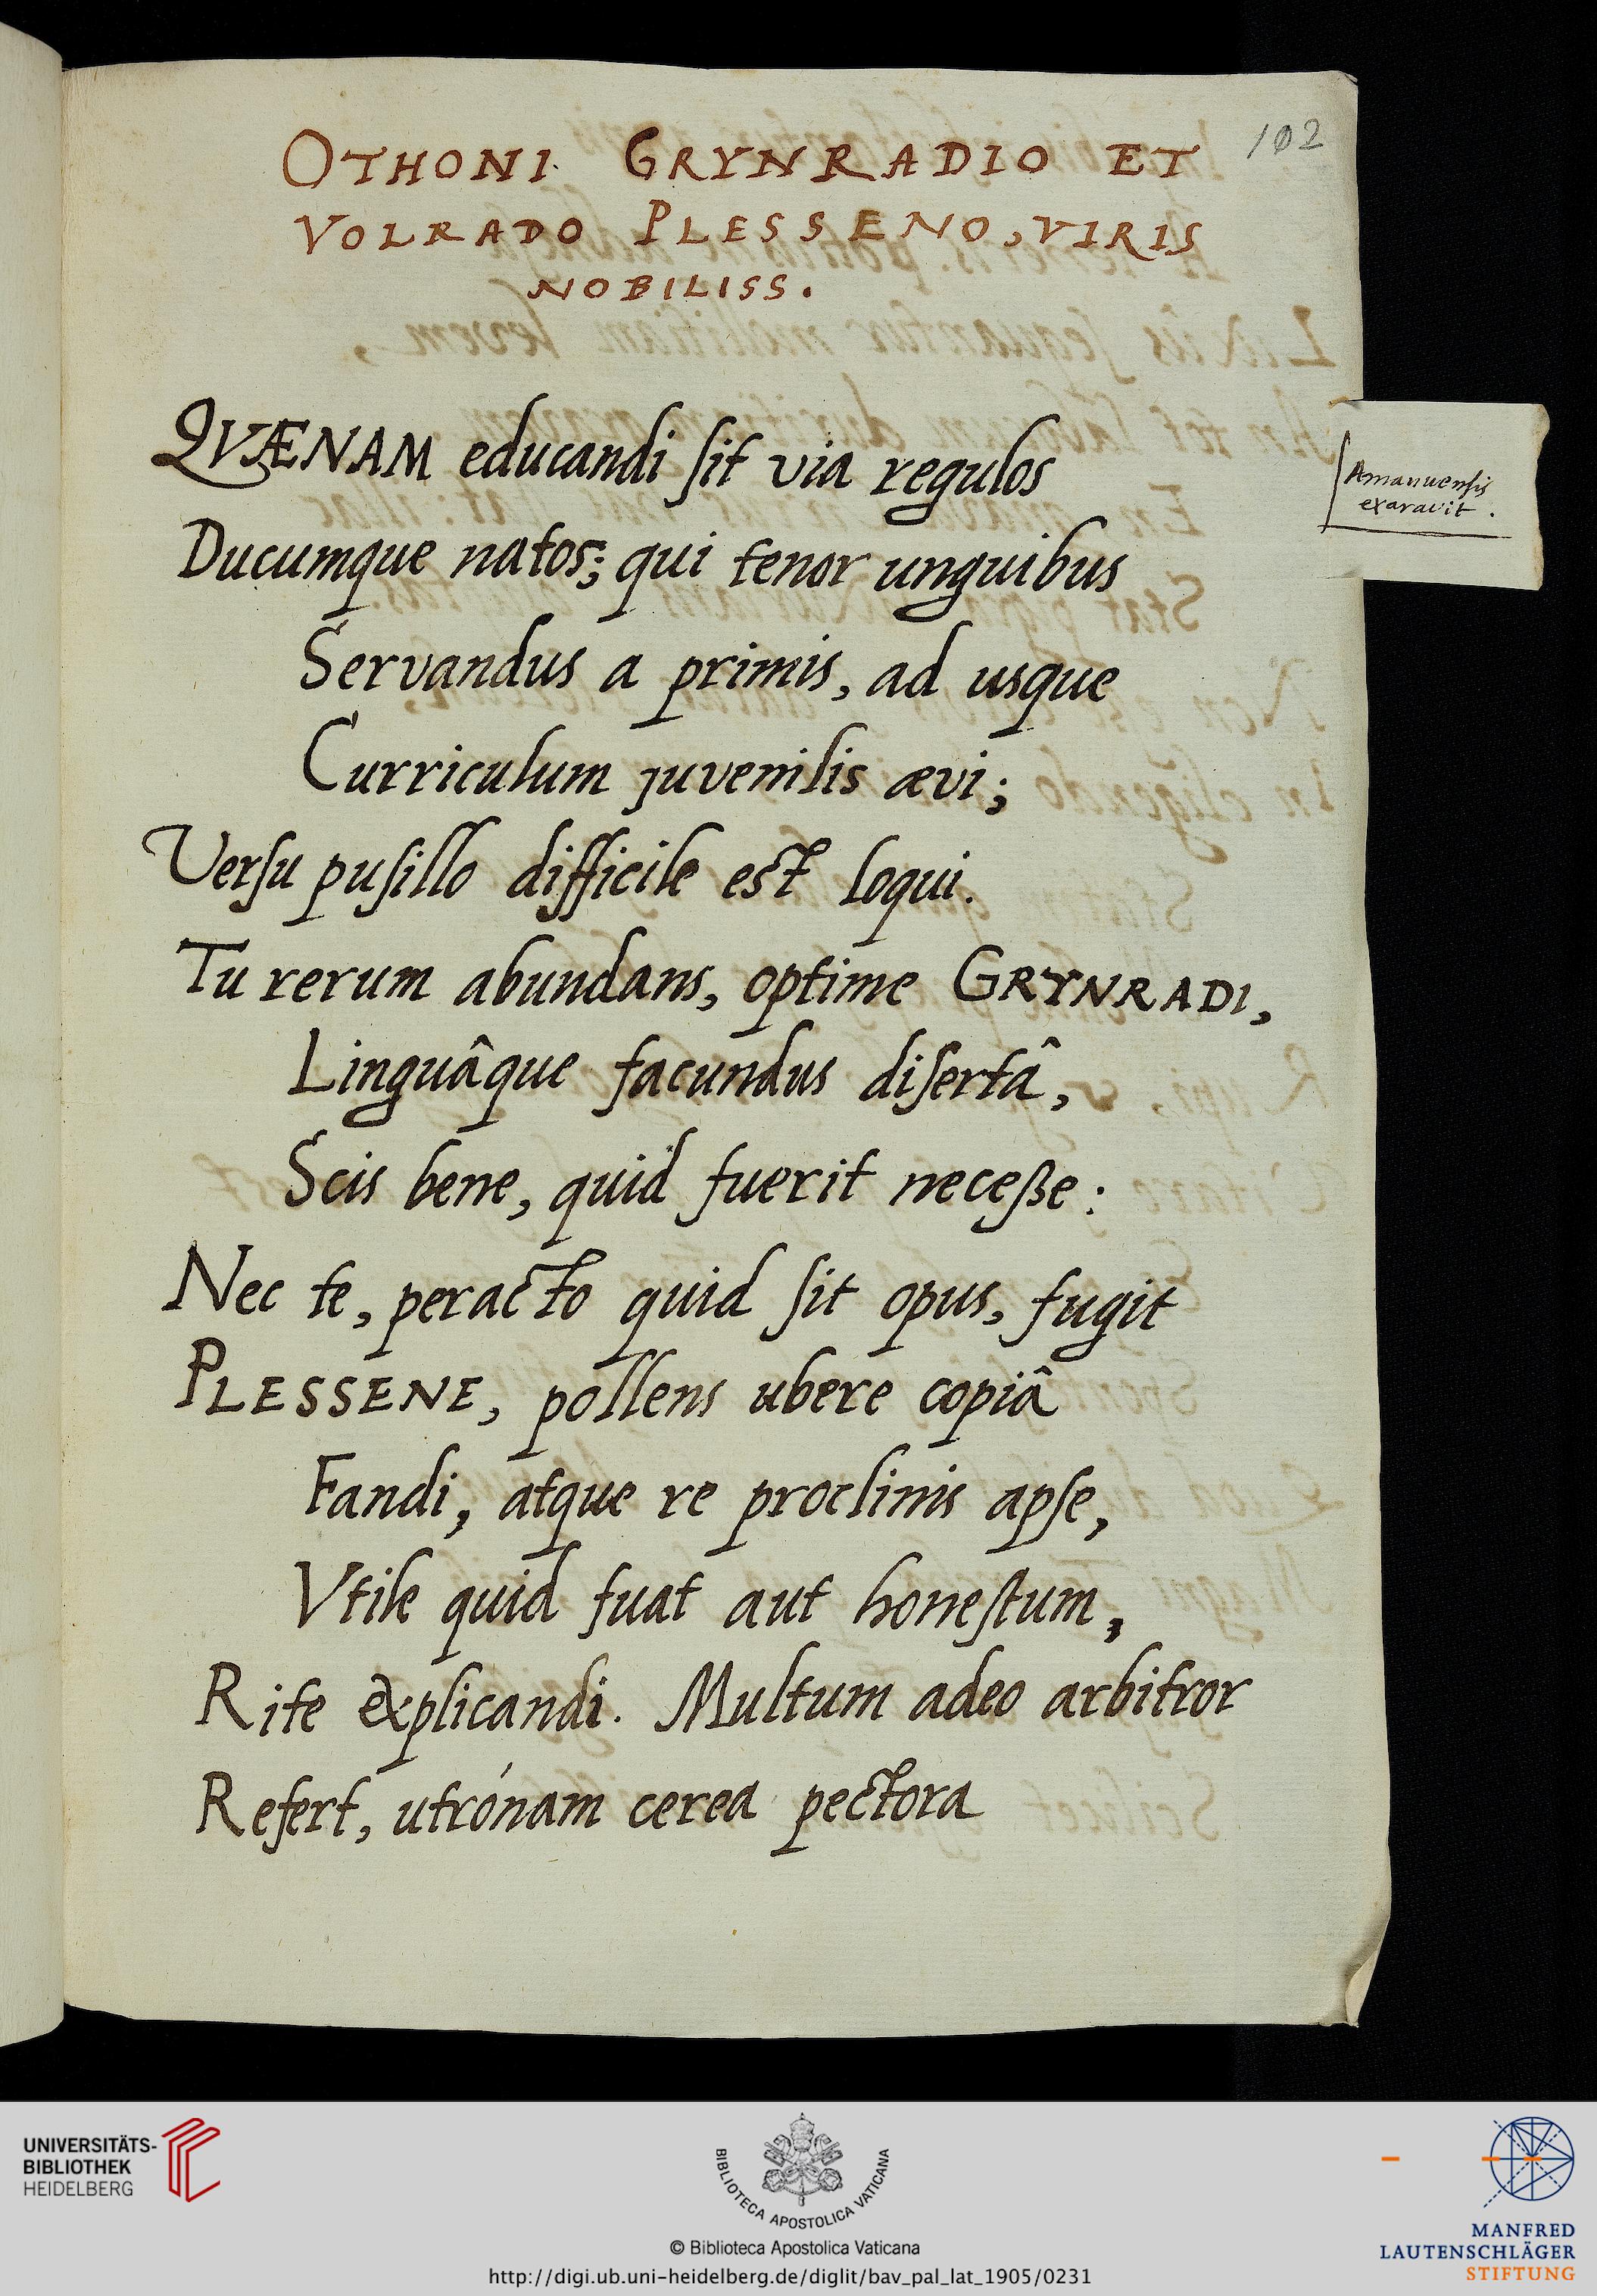 102
OTHONI GRYNRADIO ET
VOLRADO PLESSENO, VIRIS
NOBILISS.
QVÆNAM educandi sit via regulos
Ducumque natos; qui tenor unguibus
Servandus a primis, ad usque
Curriculum juvenilis ævi;
Versu pusillo difficile est loqui.
Tu rerum abundans, optime GRYNRADI,
Linguâque facundus disertâ,
Scis bene, quid fuerit neceße:
Nec te, peracto quid sit opus, fugit
PLESSENE, pollens ubere copiâ
Fandi, atque re proclinis apse,
Vtile quid fuat aut honestum,
Rite explicandi. Multum adeo arbitror
Refert, utrónam cerea pectora
Amanuensis
exaravit.
UNIVERSITÄTS-
BIBLIOTHEK
HEIDELBERG
BIBLIOTECA APOSTOLICA VATICANA
© Biblioteca Apostolica Vaticana
http://digi.ub.uni-heidelberg.de/diglit/bav_pal_lat_1905/0231
MANFRED
LAUTENSCHLÄGER
STIFTUNG